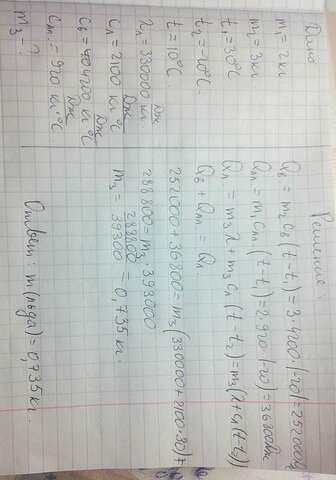 Дано
m₁ = 2 кг
m₂ = 3 кг
t₁ = 30°C
t₂ = -10°C
t = 10°C
λл = 330000 Дж/кг
cл = 2100 Дж/кг °C
cв = 4200 Дж/кг °C
cал. = 920 Дж/кг·°C
m₃ - ?
Решение
Qв = m₂ cв (t - t₁) = 3·4200·(-20) = 252000
Qал. = m₁ cал. (t - t₁) = 2·920·(-20) = 36800 Дж
Qл = m₃ λ + m₃ cл (t - t₂) = m₃ (λ + cл (t - t₂))
Qв + Qал. = Qл
252000 + 36800 = m₃ (330000 + 2100·30)
288800 = m₃ · 393000
m₃ = 288800/39300 = 0,735 кг.
Ответ: m (льда) = 0,735 кг.